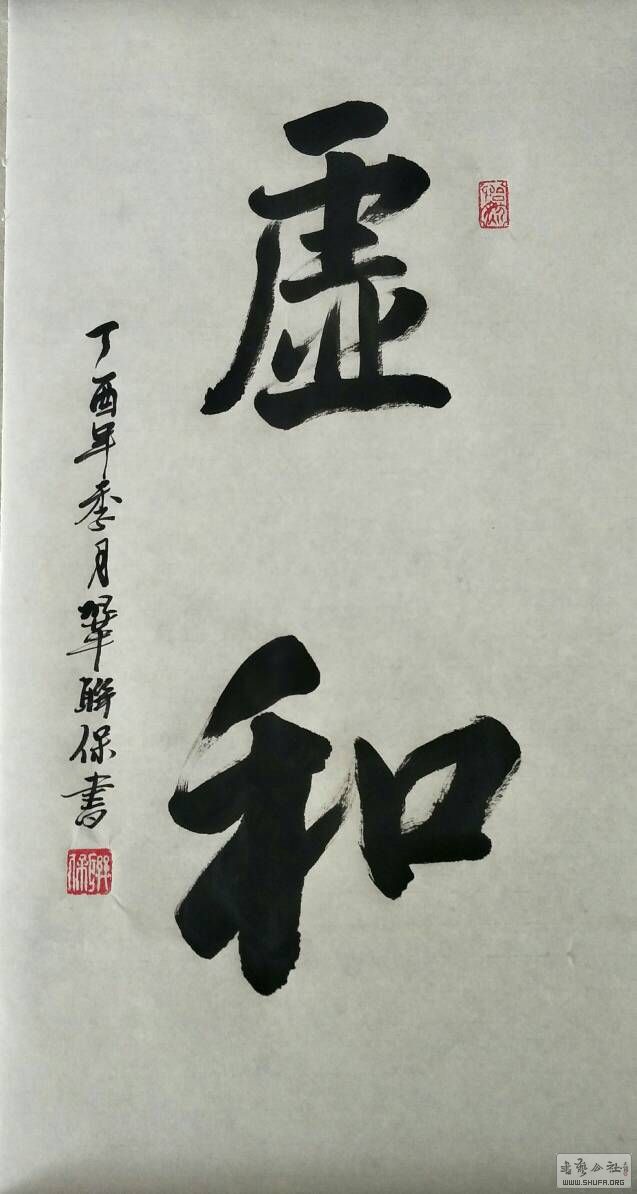 虚和
丁酉年季月鞏聯保書
书艺公社
WWW.SHUFA.ORG